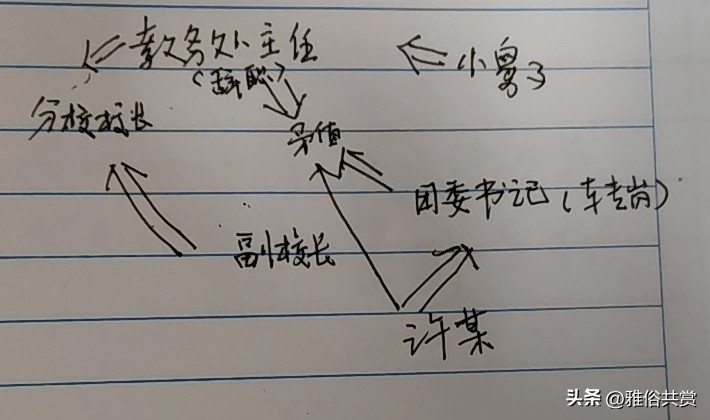 教务处主任
小舅子
(辞职)
分校校长
团委书记(车老岗)
副校长
许某
头条 @雅俗共赏